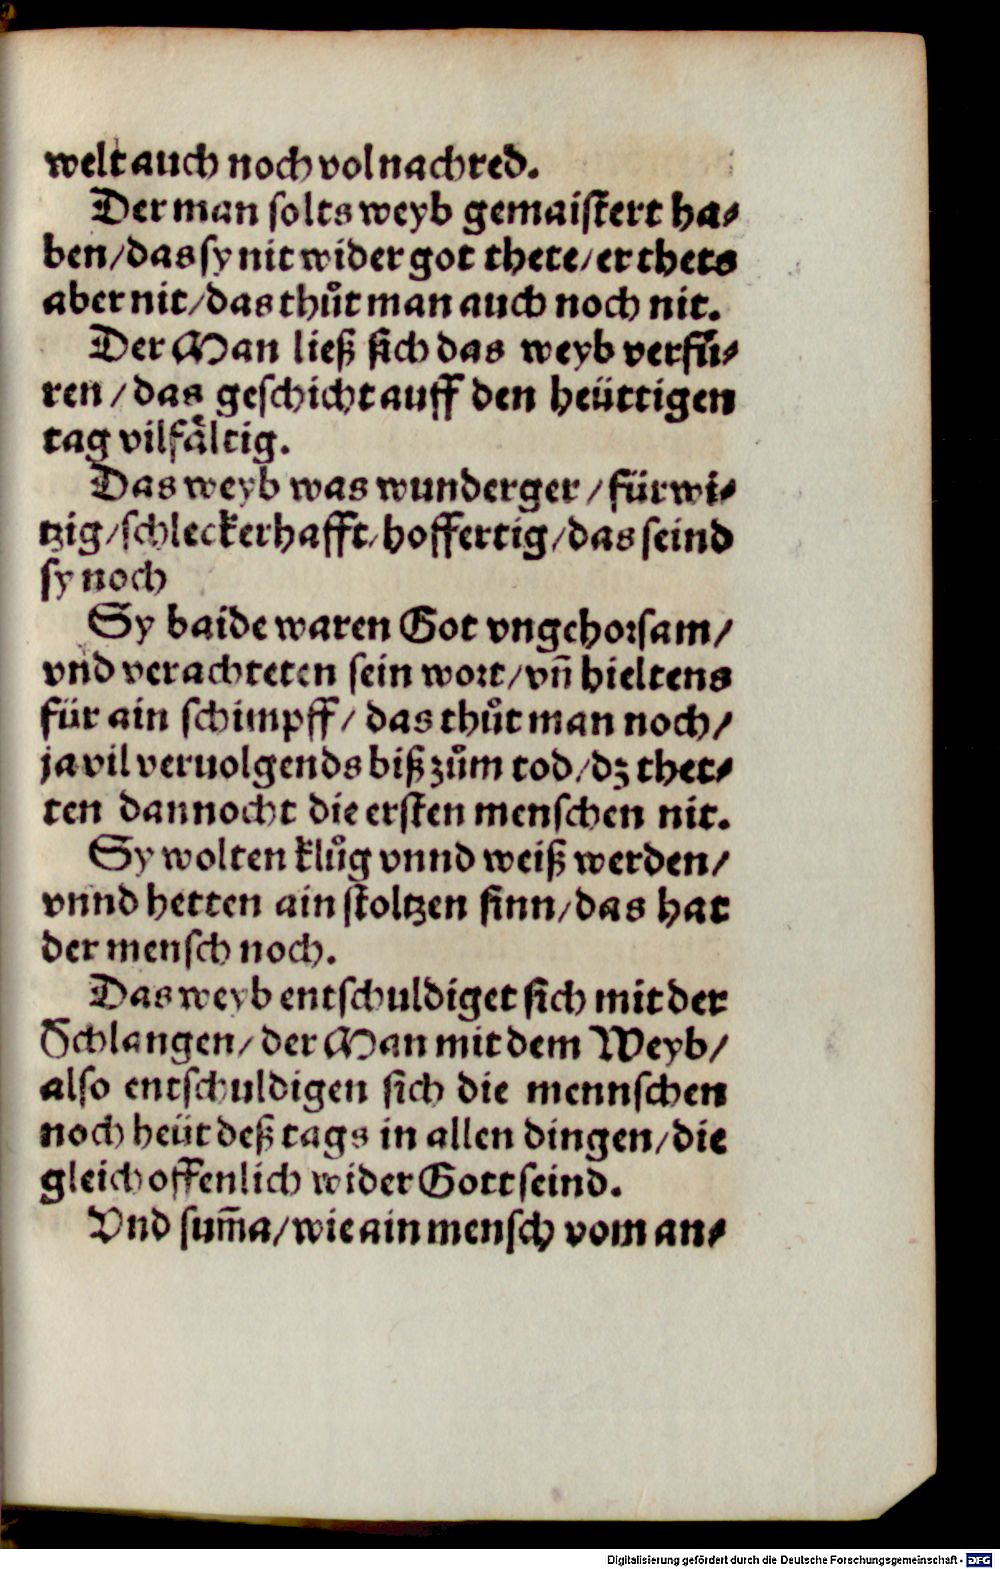 welt auch noch vol nachred.
Der man solts weyb gemaistert ha⸗
ben/das sy nit wider got thete/er thets
aber nit/das thuͦt man auch noch nit.
Der Man ließ sich das weyb verfuͤ⸗
ren/das geschicht auff den heüttigen
tag vilfaͤltig.
Das weyb was wunderger/fürwi⸗
tzig/schleckerhafft/hoffertig/das seind
sy noch
Sy baide waren Got vngehorsam/
vnd verachteten sein wort/vn̄ hieltens
für ain schimpff/das thuͦt man noch/
ja vil veruolgends biß zuͦm tod/dz thet⸗
ten dannocht die ersten menschen nit.
Sy wolten kluͦg vnnd weiß werden/
vnnd hetten ain stoltzen sinn/das hat
der mensch noch.
Das weyb entschuldiget sich mit der
Schlangen/der Man mit dem Weyb/
also entschuldigen sich die mennschen
noch heüt deß tags in allen dingen/die
gleich offenlich wider Gott seind.
Vnd sum̄a/wie ain mensch vom an⸗
Digitalisierung gefördert durch die Deutsche Forschungsgemeinschaft - DFG